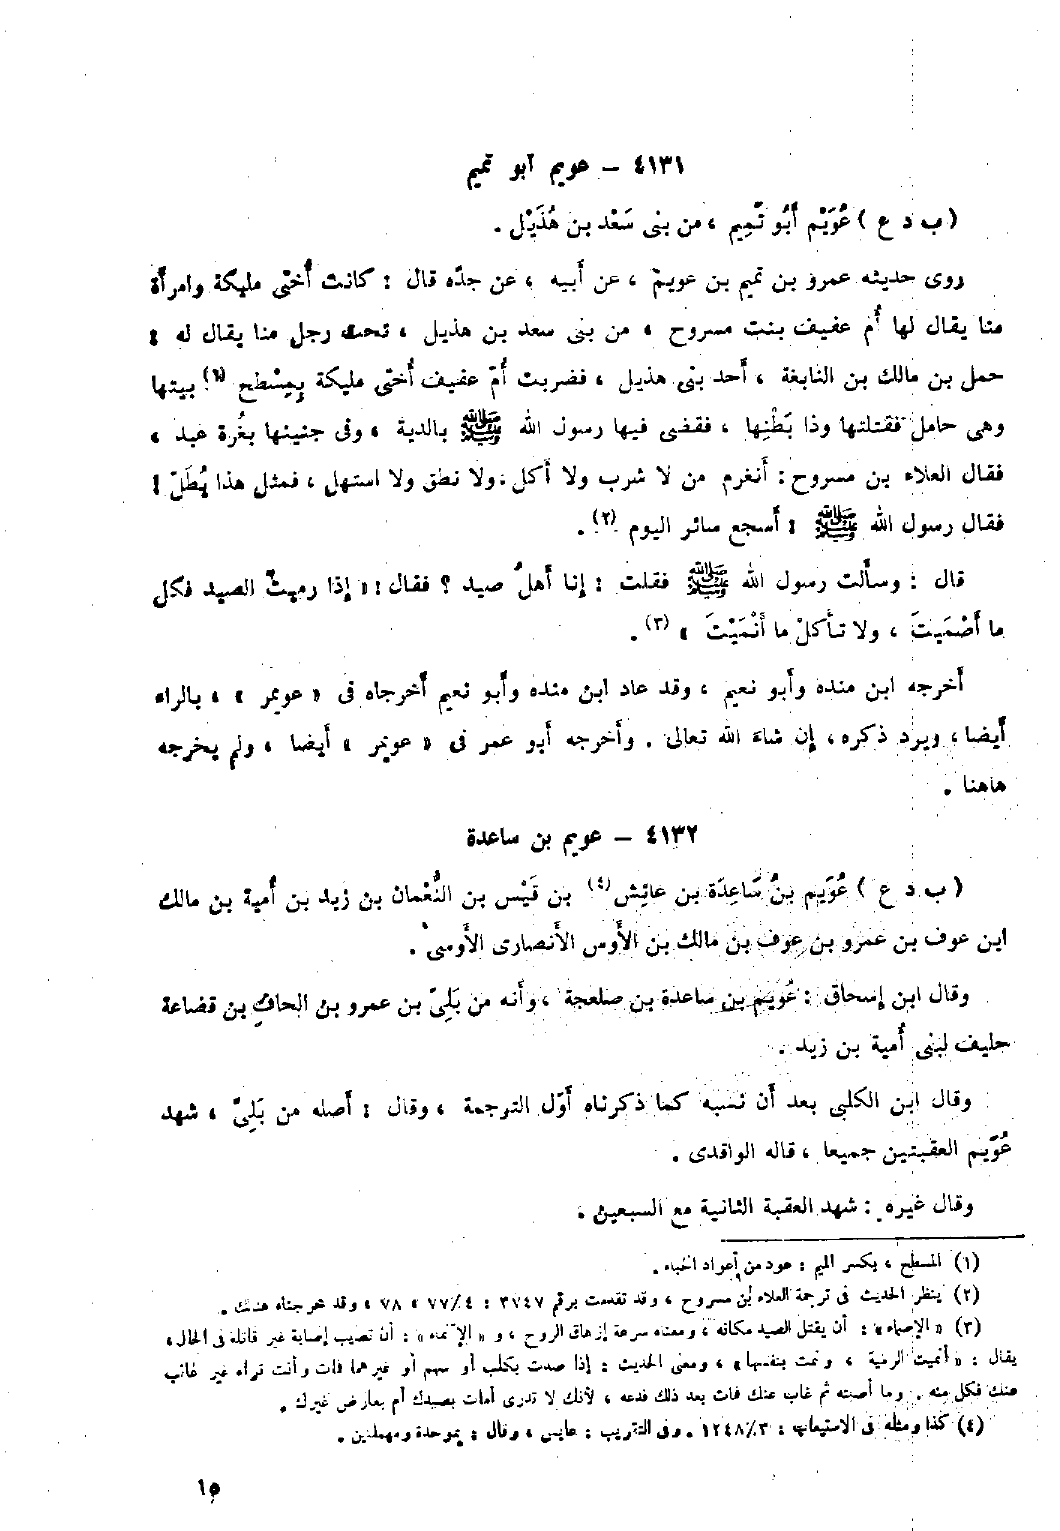 ٤١٣١ – عويم أبو تميم
( ب د ع ) عُوَيْم أَبُو تَمِيم ، من بنى سَعْد بن هُذَيْل .
روى حديثه عمرو بن تميم بن عويم ، عن أَبيه ، عن جدّه قال : كانت أُختى مليكة وامرأَة
منا يقال لها أُم عفيف بنت مسروح ، من بنى سعد بن هذيل ، تحت رجل منا يقال له :
حمل بن مالك بن النابغة ، أَحد بنى هذيل ، فضربت أُمّ عفيف أُختى مليكة بِمِسْطح (١) بيتها
وهى حامل فقتلتها وذا بَطْنِها ، فقضى فيها رسول الله ﷺ بالدية ، وفى جنينها بغُرة عبد ،
فقال العلاء بن مسروح : أَنغرم من لا شرب ولا أَكل ، ولا نطق ولا استهل ، فمثل هذا يُطَلّ !
فقال رسول الله ﷺ : أَسجع سائر اليوم (٢) .
قال : وسأَلت رسول الله ﷺ فقلت : إنا أَهلُ صيد ؟ فقال : « إذا رميتَ الصيد فكل
ما أَصْمَيتَ ، ولا تأكلْ ما أَنْمَيْتَ » (٣) .
أَخرجه ابن منده وأَبو نعيم ، وقد عاد ابن منده وأَبو نعيم أَخرجاه فى « عويمر » ، بالراء
أَيضا ، ويرد ذكره ، إن شاءَ الله تعالى . وأَخرجه أَبو عمر فى « عويمر » أَيضا ، ولم يخرجه
هاهنا .
٤١٣٢ – عويم بن ساعدة
( ب د ع ) عُوَيم بنُ سَاعِدَة بن عائِش (٤) بن قَيْس بن النُّعْمان بن زيد بن أُمية بن مالك
ابن عوف بن عمرو بن عوف بن مالك بن الأَوس الأَنصارى الأَوسى .
وقال ابن إسحاق : عُويم بن ساعدة بن صلعجة ، وأَنه من بَلِىّ بن عمرو بن الحاف بن قضاعة
حليف لبنى أُمية بن زيد .
وقال ابن الكلبى بعد أَن نسبه كما ذكرناه أَوّل الترجمة ، وقال : أَصله من بَلِىّ ، شهد
عُوَيم العقبتين جميعا ، قاله الواقدى .
وقال غيره : شهد العقبة الثانية مع السبعين .
(١) المسطح ، بكسر الميم : عود من أعواد الخباء .
(٢) ينظر الحديث فى ترجمة العلاء بن مسروح ، وقد تقدمت برقم ٣٧٤٧ : ٤/ ٧٧ ، ٧٨ ، وقد خرجناه هنالك .
(٣) « الإصماء » : أن يقتل الصيد مكانه ، ومعناه سرعة إزهاق الروح ، و « الإنماء » : أن تصيب إصابة غير قاتلة فى الحال ،
يقال : « أنميت الرمية ، ونمت بنفسها » ، ومعنى الحديث : إذا صدت بكلب أو سهم أو غيرهما فمات وأنت تراه غير غائب
عنك فكل منه . وما أصبته ثم غاب عنك فمات بعد ذلك فدعه ، لأنك لا تدرى أمات بصيدك أم بعارض غيرك .
(٤) كذا ومثله فى الاستيعاب : ٣/ ١٢٤٨ . وفى التقريب : عابس ، وقال : بموحدة ومهملتين .
١٥